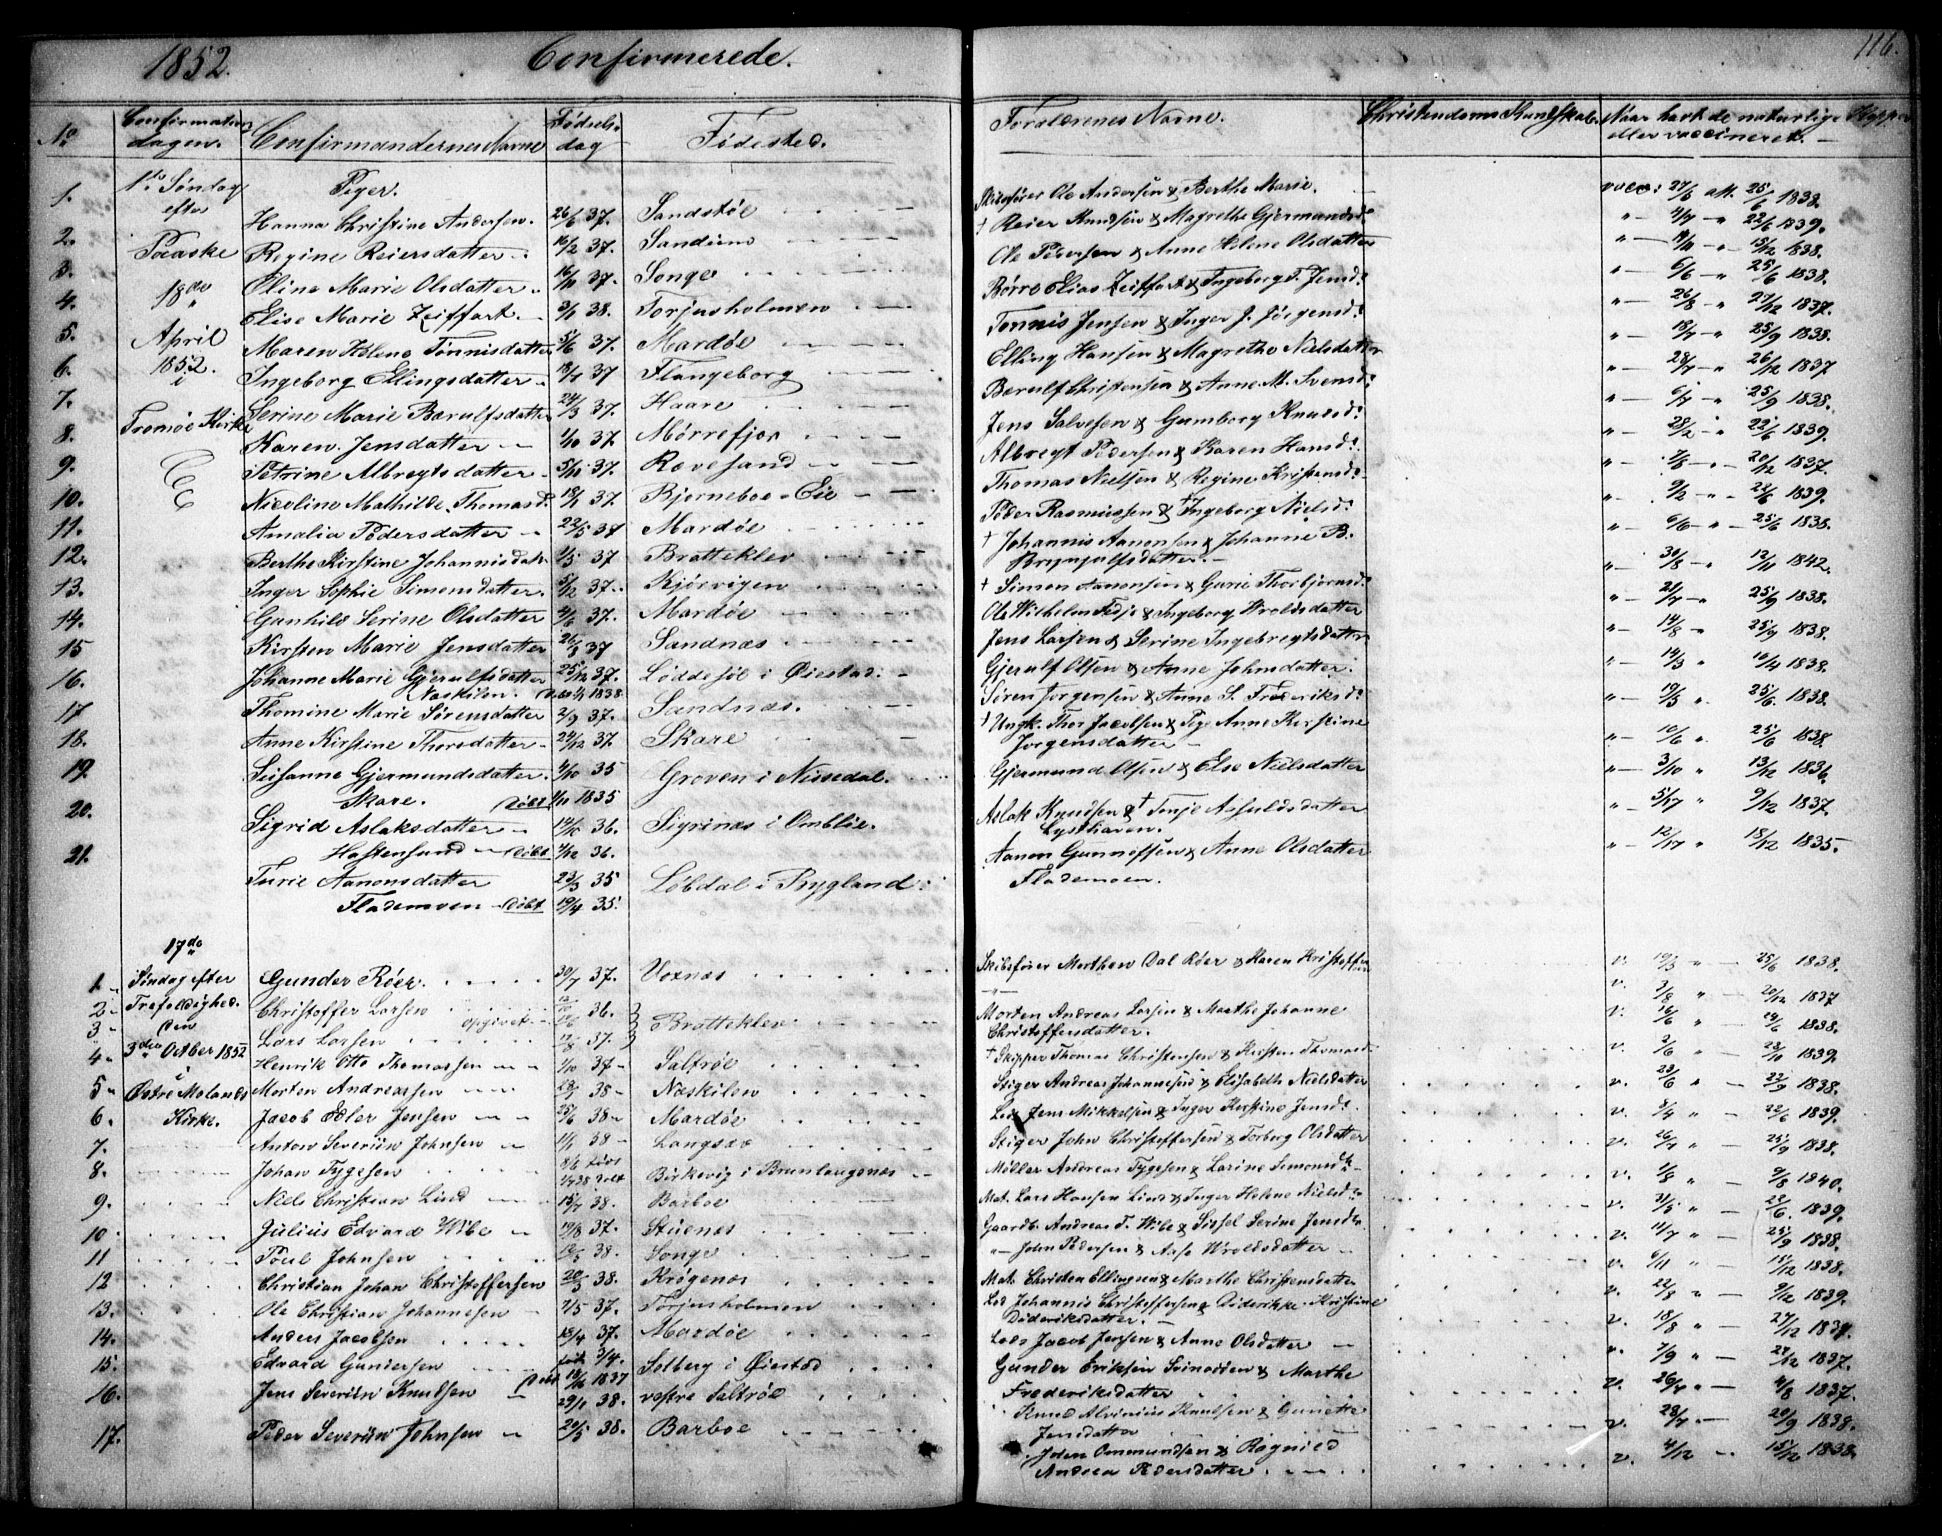 1852. Confirmerede. 116.
No Confirmations dagen. Confirmandernes Navne Fødselsdag Fødested. Forældrenes Navne. Christendoms Kundskab. Naar havt de naturlige Kopper eller vaccineret.
1ste Søndag efter Paaske 18de April 1852 i Tromøe Kirke
Piger.
1. Hanna Christine Andersen. 26/6 37. Sandstøe Skibsfører Ole Andersen & Berthe Marie. vacc: 27/6 att. 25/6 1838.
2. Regine Reiersdatter 16/2 37. Sandum † Reier Knudsen & Magrethe Gjermundsd: 22/6 1839.
3. Oline Marie Olsdatter 16/10 37. Songe Ole Pedersen & Anne Helene Olsdatter 15/12 1838.
4. Elise Marie Zeiffart. 3/1 38. Torjusholmen Børre Elias Zeiffart & Ingeborg T. Jensd: 6/6 25/6 1838.
5. Maren Helene Tønnisdatter 5/6 37. Mardøe Tønnis Jensen & Inger J. Jørgensd: 26/8 27/12 1837.
6. Ingeborg Ellingsdatter 37 Flangeborg Elling Hansen & Magrethe Nielsdatter 25/9 1838.
7. Serine Marie Berulfsdatter 24/3 37. Haare Berulf Christensen & Anne M. Svensd: 28/7 26/12 1837
8. Karen Jensdatter 1/10 37. Mørrefjær Jens Salvesen & Gumborg Knudsd: 25/9 1838.
9. Petrine Albregtsdatter 5/11 37. Rævesand Albregt Pedersen & Karen Hansd: 28/2 22/6 1839.
10. Nicoline Mathilde Thomasd. 18/1 37. Bjørneboe Eie Thomas Nielsen & Regine Kristensd: 7/8 20/12 1837.
11. Amalia Pedersdatter 22/5 37 Mardøe Peder Rasmussen & † Ingeborg Nielsd: 9/2 22/6 1839.
12. Berthe Kirstine Johannisdatr 37 Bratteklev † Johannis Aanonsen & Johanne B. Brynjulfsdatter. 6/6 25/6 1838.
13. Inger Sophie Simonsdatter. 5/12 37. Kjørvigen † Simon Aanonsen & Gurie Thorbjørnsd: 30/8 12/11 1842.
14. Gunhild Serine Olsdatter 4/6 37. Mardøe Ole Wilhelm Fedje & Ingeborg Wroldsdatter 21/7 25/9 1838.
15 Kirsten Marie Jensdatter 37 Sandnæs Jens Larsen & Serine Ingebregtsdatter 14/8 25/9 1838.
16. Johanne Marie Gjerulfsdatter 25/12 37. Løddesøl i Øiestad. Gjerulf Olsen & Anne Johnsdatter. 14/3 16/4 1838.
Naskilen. Døbt 1/1 1838
17 Thomine Marie Sørensdatter 2/9 37. Sandnæs. Søren Jørgensen & Anne S. Frederiksd: 19/3 25/6 1838.
18. Anne Kirstine Thorsdatter 24/12 37. Skare † Ungk. Thor Jacobsen & Pige Anne Kirstine Jørgensdatter 10/6 25/6 1838.
19. Susanne Gjermundsdatter 4/10 35 Groven i Nissedal. Gjermund Olsen & Else Nielsdatter 3/10 13/12 1836.
Skare. Døbt 1/11 1835
20. Sigrid Aslaksdatter 36. Aslak Knudsen & † Tonje Asfuldsdatter 9/12 1837.
Hastensund Døbt 4/12 36. Lysthaven.
21. Turie Aanonsdatter 23/3 35 Løbdal i Bygland Aanon Gunnolfsen & Anne Olsdatter 18/12 1835.
Flademoen Døbt 19/4 35. Flademoen.
17de Søndag efter Trefoldighed. den 3die October 1852 i Østre Molands Kirke.
1. Gunder Röer. 30/7 37. Voxnæs Skibsfører Morthen Dal Röer & Karen Kristoffersen v. 19/3 25/6 1838.
2 Christoffer Larsen 36. v. 3/8 20/12 1837
3 Lars Larsen opgivet 37. Bratteklev Morten Andreas Larsen & Marthe Johanne Christoffersdatter. v. 16/6 1838.
4 Henrik Otto Thomassen 1/10 37 Saltrøe † Skipper Thomas Christensen & Kirsten Thomasd v. 2/6 23/10 1839.
5 Morten Andreassen 38 Næskilen Stiger Andreas Johannesen & Elisabeth Nielsdatter v. 23/6 22/9 1838.
6. Jacob Edler Jensen 25/6 38 Mardøe Lods Jens Mikkelsen & Inger Kirstine Jensd: v. 22/6 1839.
7. Anton Severin Johnsen 38 Langsæe Stiger John Christoffersen & Torborg Olsdatter v. 26/7 25/9 1838.
8. Johan Tygesen født døbt Birkevig i Brunlaugenæs Møller Andreas Tygesen & Larine Simonsd v. 1/8 9/8 1840.
9. Niels Christian Lind 15/7 38. Barboe Mat. Lars Hansen Lind & Inger Helene Nielsd: v. 3/5 22/6. 1839.
10. Julius Edvard Wibe 19/8 37. Stuenæs Gaardb. Andreas T. Wibe & Sissel Serine Jensd v. 14/7 25/9 1838.
11 Poul Johnsen 38. Songe John Pedersen & Aase Wroldsdatter v. 6/11 15/12 1838.
12 Christian Johan Christoffersen 20/3 38. Krøgenæs Mat. Christen Ellingsen & Marthe Christensdatter v. 22/8 9/12 1839.
13. Ole Christian Johannesen 7/5 37. Torjusholmen Lods Johannis Christoffersen & Diderikke Kristine Dideriksdatter. v. 18/8 27/12 1837.
14. Anders Jacobsen 15/4 37. Mardøe Lods Jacob Jensen & Anne Olsdatter v. 7/9 27/12 1837.
15. Edvard Gundersen født 3/4. Døbt 1837 Solberg i Øiestad Gunder Eriksen Svinodden & Marthe Frederiksdatter v. 26/4 4/8 1837.
16. Jens Severin Knudsen 29/1 38. vestre Saltrøe Knud Alvinius Knudsen & Gunette Jensdatter v. 28/7 20/9 1838.
17. Peder Severin Johnsen 20/5 38. Barboe John Ommundsen & Rognild Andrea Pedersdatter v. 4/12 15/12 1838.